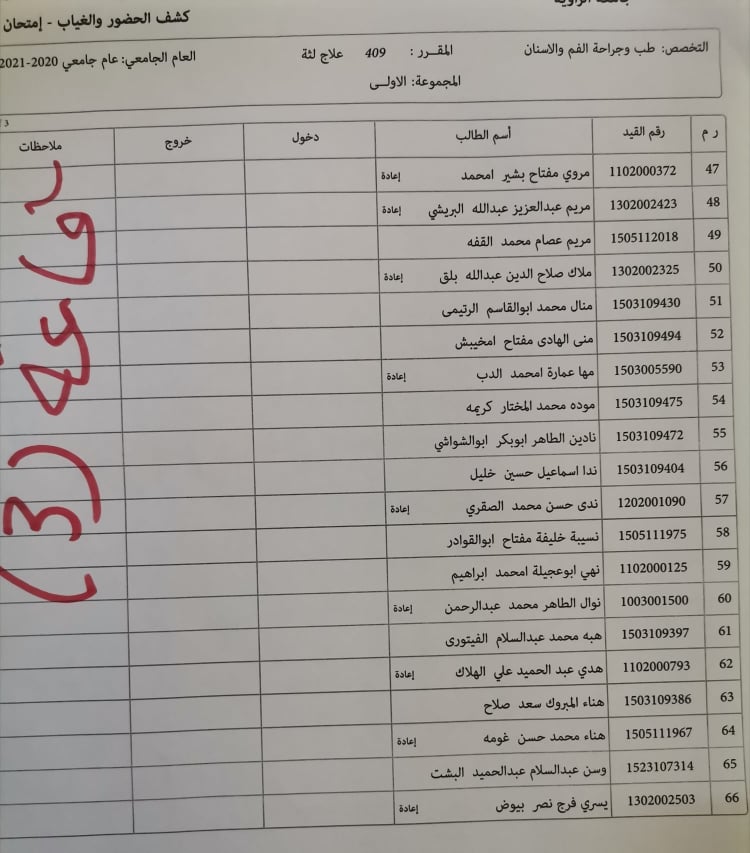 جامعة الزاوية
كشف الحضور والغياب - إمتحان
التخصص: طب وجراحة الفم والاسنان المقرر : 409 علاج لثة العام الجامعي: عام جامعي 2020-2021
المجموعة: الاولى
3
ر م رقم القيد أسم الطالب دخول خروج ملاحظات
47 1102000372 مروي مفتاح بشير امحمد إعادة
48 1302002423 مريم عبدالعزيز عبدالله البريشي إعادة
49 1505112018 مريم عصام محمد القفه
50 1302002325 ملاك صلاح الدين عبدالله بلق إعادة
51 1503109430 منال محمد ابوالقاسم الرتيمى
52 1503109494 منى الهادى مفتاح امخيبش
53 1503005590 مها عمارة امحمد الدب إعادة
54 1503109475 موده محمد المختار كريمه
55 1503109472 نادين الطاهر ابوبكر ابوالشواشي
56 1503109404 ندا اسماعيل حسين خليل
57 1202001090 ندى حسن محمد الصقري إعادة
58 1505111975 نسيبة خليفة مفتاح ابوالقوادر
59 1102000125 نهي ابوعجيلة امحمد ابراهيم
60 1003001500 نوال الطاهر محمد عبدالرحمن إعادة
61 1503109397 هبه محمد عبدالسلام الفيتورى
62 1102000793 هدي عبد الحميد علي الهلاك إعادة
63 1503109386 هناء المبروك سعد صلاح
64 1505111967 هناء محمد حسن غومه إعادة
65 1523107314 وسن عبدالسلام عبدالحميد البشت
66 1302002503 يسري فرج نصر بيوض إعادة
(3)